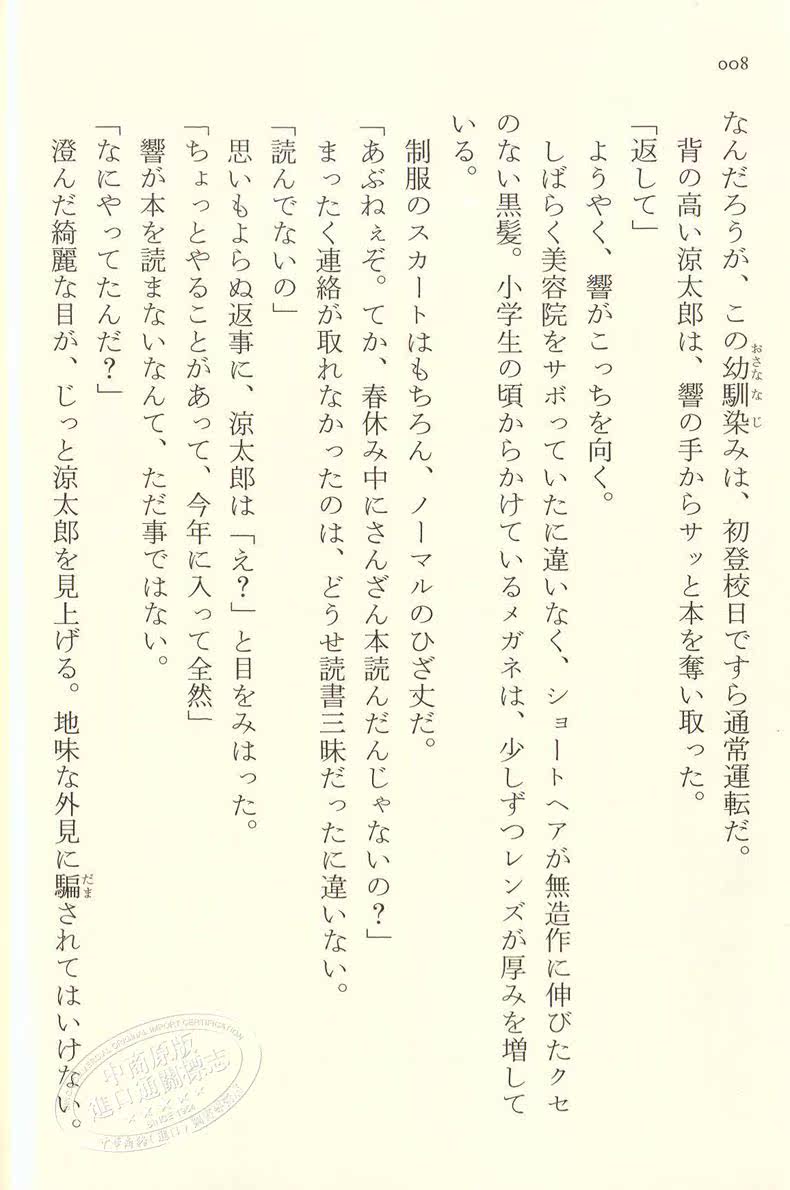 008
なんだろうが、この幼馴染みは、初登校日ですら通常運転だ。
おさななじ
背の高い涼太郎は、響の手からサッと本を奪い取った。
「返して」
ようやく、響がこっちを向く。
しばらく美容院をサボっていたに違いなく、ショートヘアが無造作に伸びたクセ
のない黒髪。小学生の頃からかけているメガネは、少しずつレンズが厚みを増して
いる。
制服のスカートはもちろん、ノーマルのひざ丈だ。
「あぶねぇぞ。てか、春休み中にさんざん本読んだんじゃないの？」
まったく連絡が取れなかったのは、どうせ読書三昧だったに違いない。
「読んでないの」
思いもよらぬ返事に、涼太郎は「え？」と目をみはった。
「ちょっとやることがあって、今年に入って全然」
響が本を読まないなんて、ただ事ではない。
「なにやってたんだ？」
澄んだ綺麗な目が、じっと涼太郎を見上げる。地味な外見に騙されてはいけない。
だま
中商原版
進口通關標志